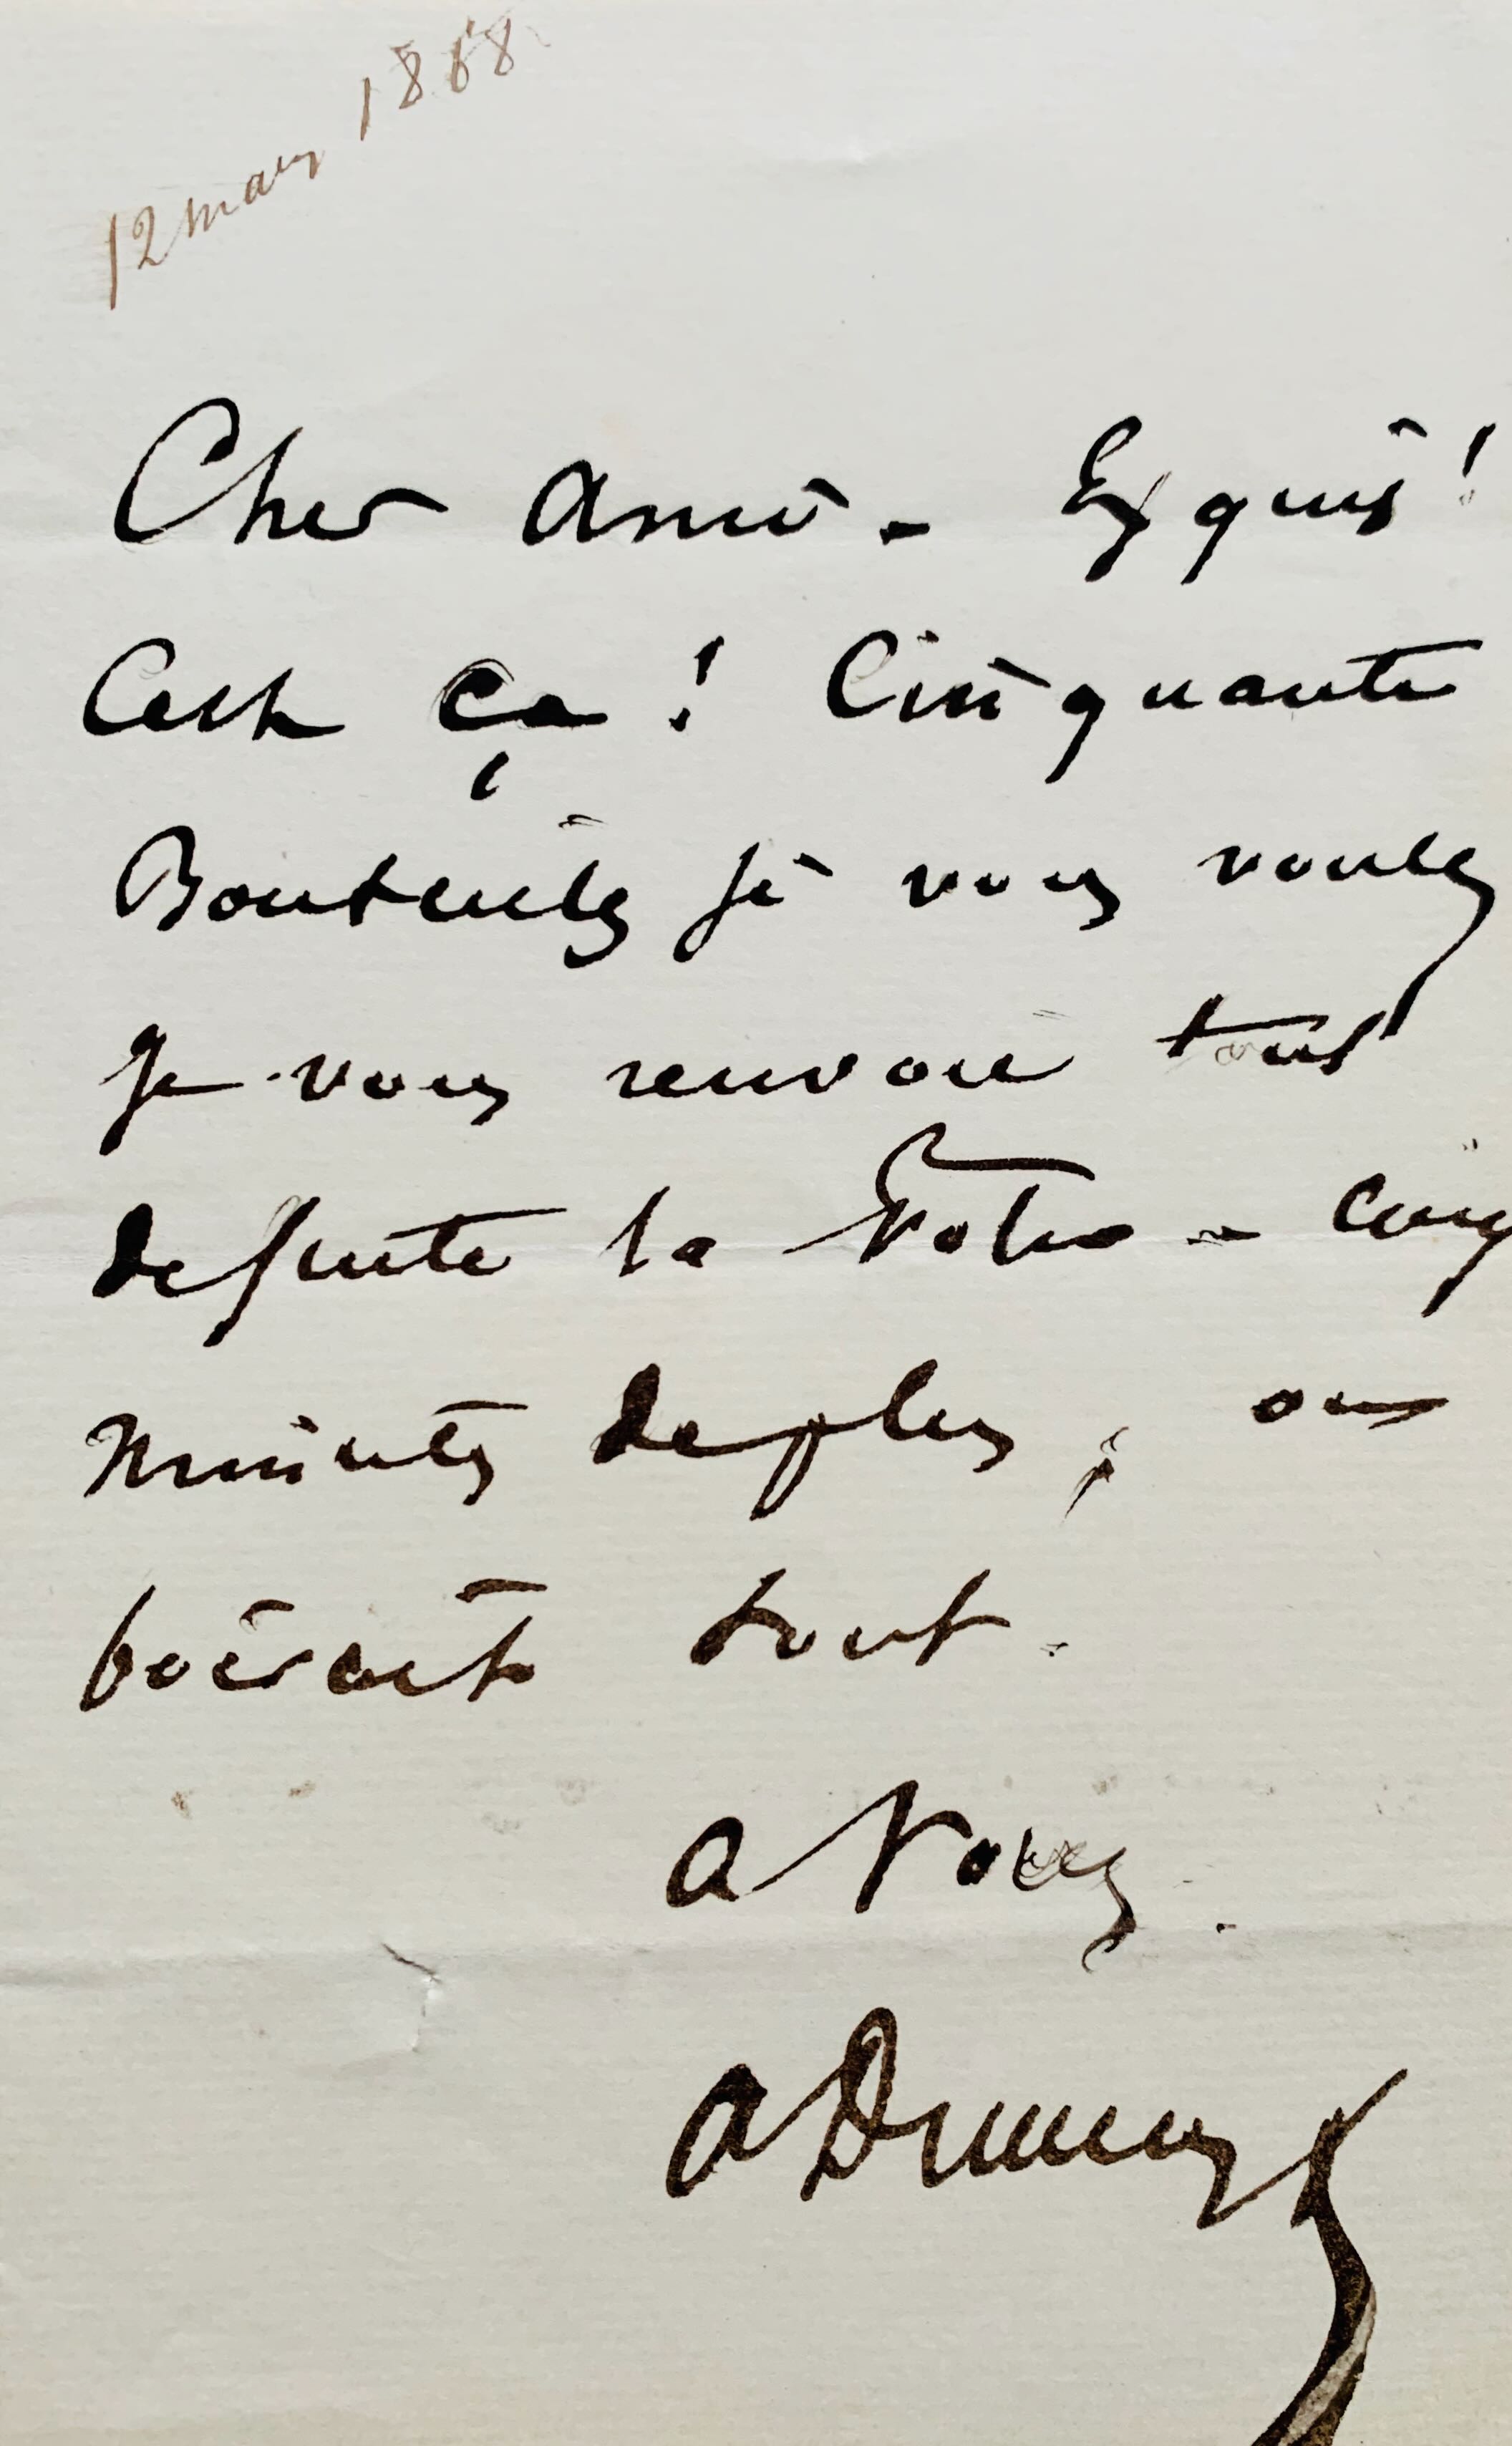 12 mars 1868
Cher ami - Exquis!
Cest ça! Cinquante
Bouteilles si vous voulez
Je vous renvoie tout
de suite la votre - cinq
minutes de plus, on
boirait tout.
a vous.
ADumas